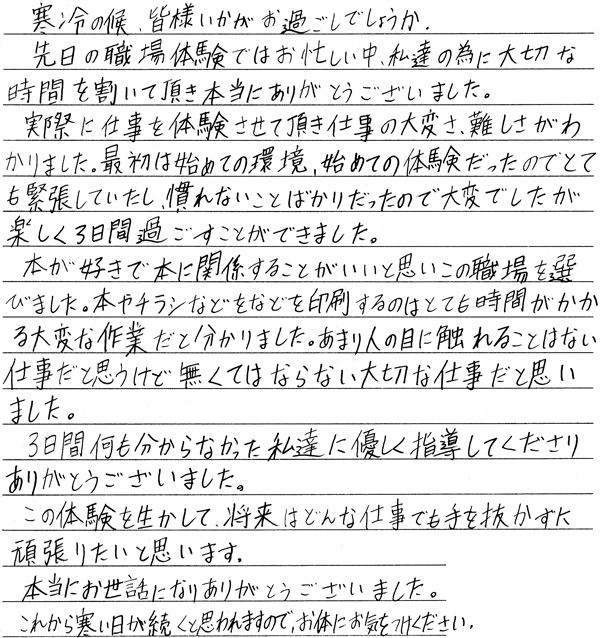 寒冷の候、皆様いかがお過ごしでしょうか。
先日の職場体験ではお忙しい中、私達の為に大切な
時間を割いて頂き本当にありがとうございました。
実際に仕事を体験させて頂き仕事の大変さ、難しさがわ
かりました。最初は始めての環境、始めての体験だったのでとて
も緊張していたし、慣れないことばかりだったので大変でしたが
楽しく3日間過ごすことができました。
本が好きで本に関係することがいいと思いこの職場を選
びました。本やチラシなどをなどを印刷するのはとても時間がかか
る大変な作業だと分かりました。あまり人の目に触れることはない
仕事だと思うけど無くてはならない大切な仕事だと思い
ました。
3日間何も分からなかった私達に優しく指導してくださり
ありがとうございました。
この体験を生かして、将来はどんな仕事でも手を抜かずに
頑張りたいと思います。
本当にお世話になりありがとうございました。
これから寒い日が続くと思われますので、お体にお気をつけください。